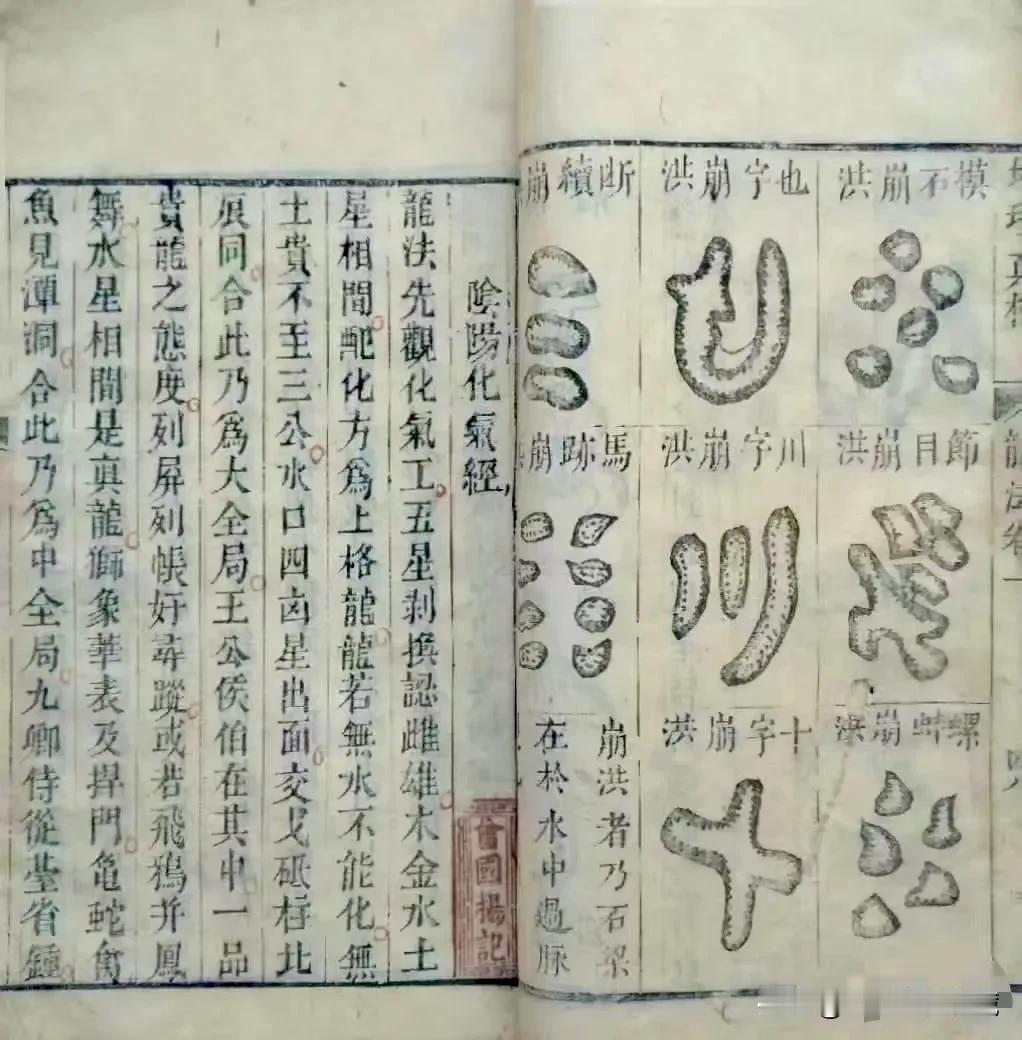 龍法卷一
模石崩洪
也字崩洪
断續崩
節目崩洪
川字崩洪
馬跡崩洪
螺蚌崩洪
十字崩洪
崩洪者乃石梁
在於水中過脉
陰陽化氣經
會國揚記
龍法先觀化氣工五星剥換認雌雄木金水土
星相間配化方爲上格龍龍若無水不能化無
土貴不至三公水口四凶星出面交戈砥柱北
辰同合此乃爲大全局王公侯伯在其中一品
貴龍之態度列屏列帳好尋蹤或若飛鴉并鳳
舞水星相間是真龍獅象華表及捍門龜蛇禽
魚見潭洞合此乃爲中全局九卿侍從臺省鍾